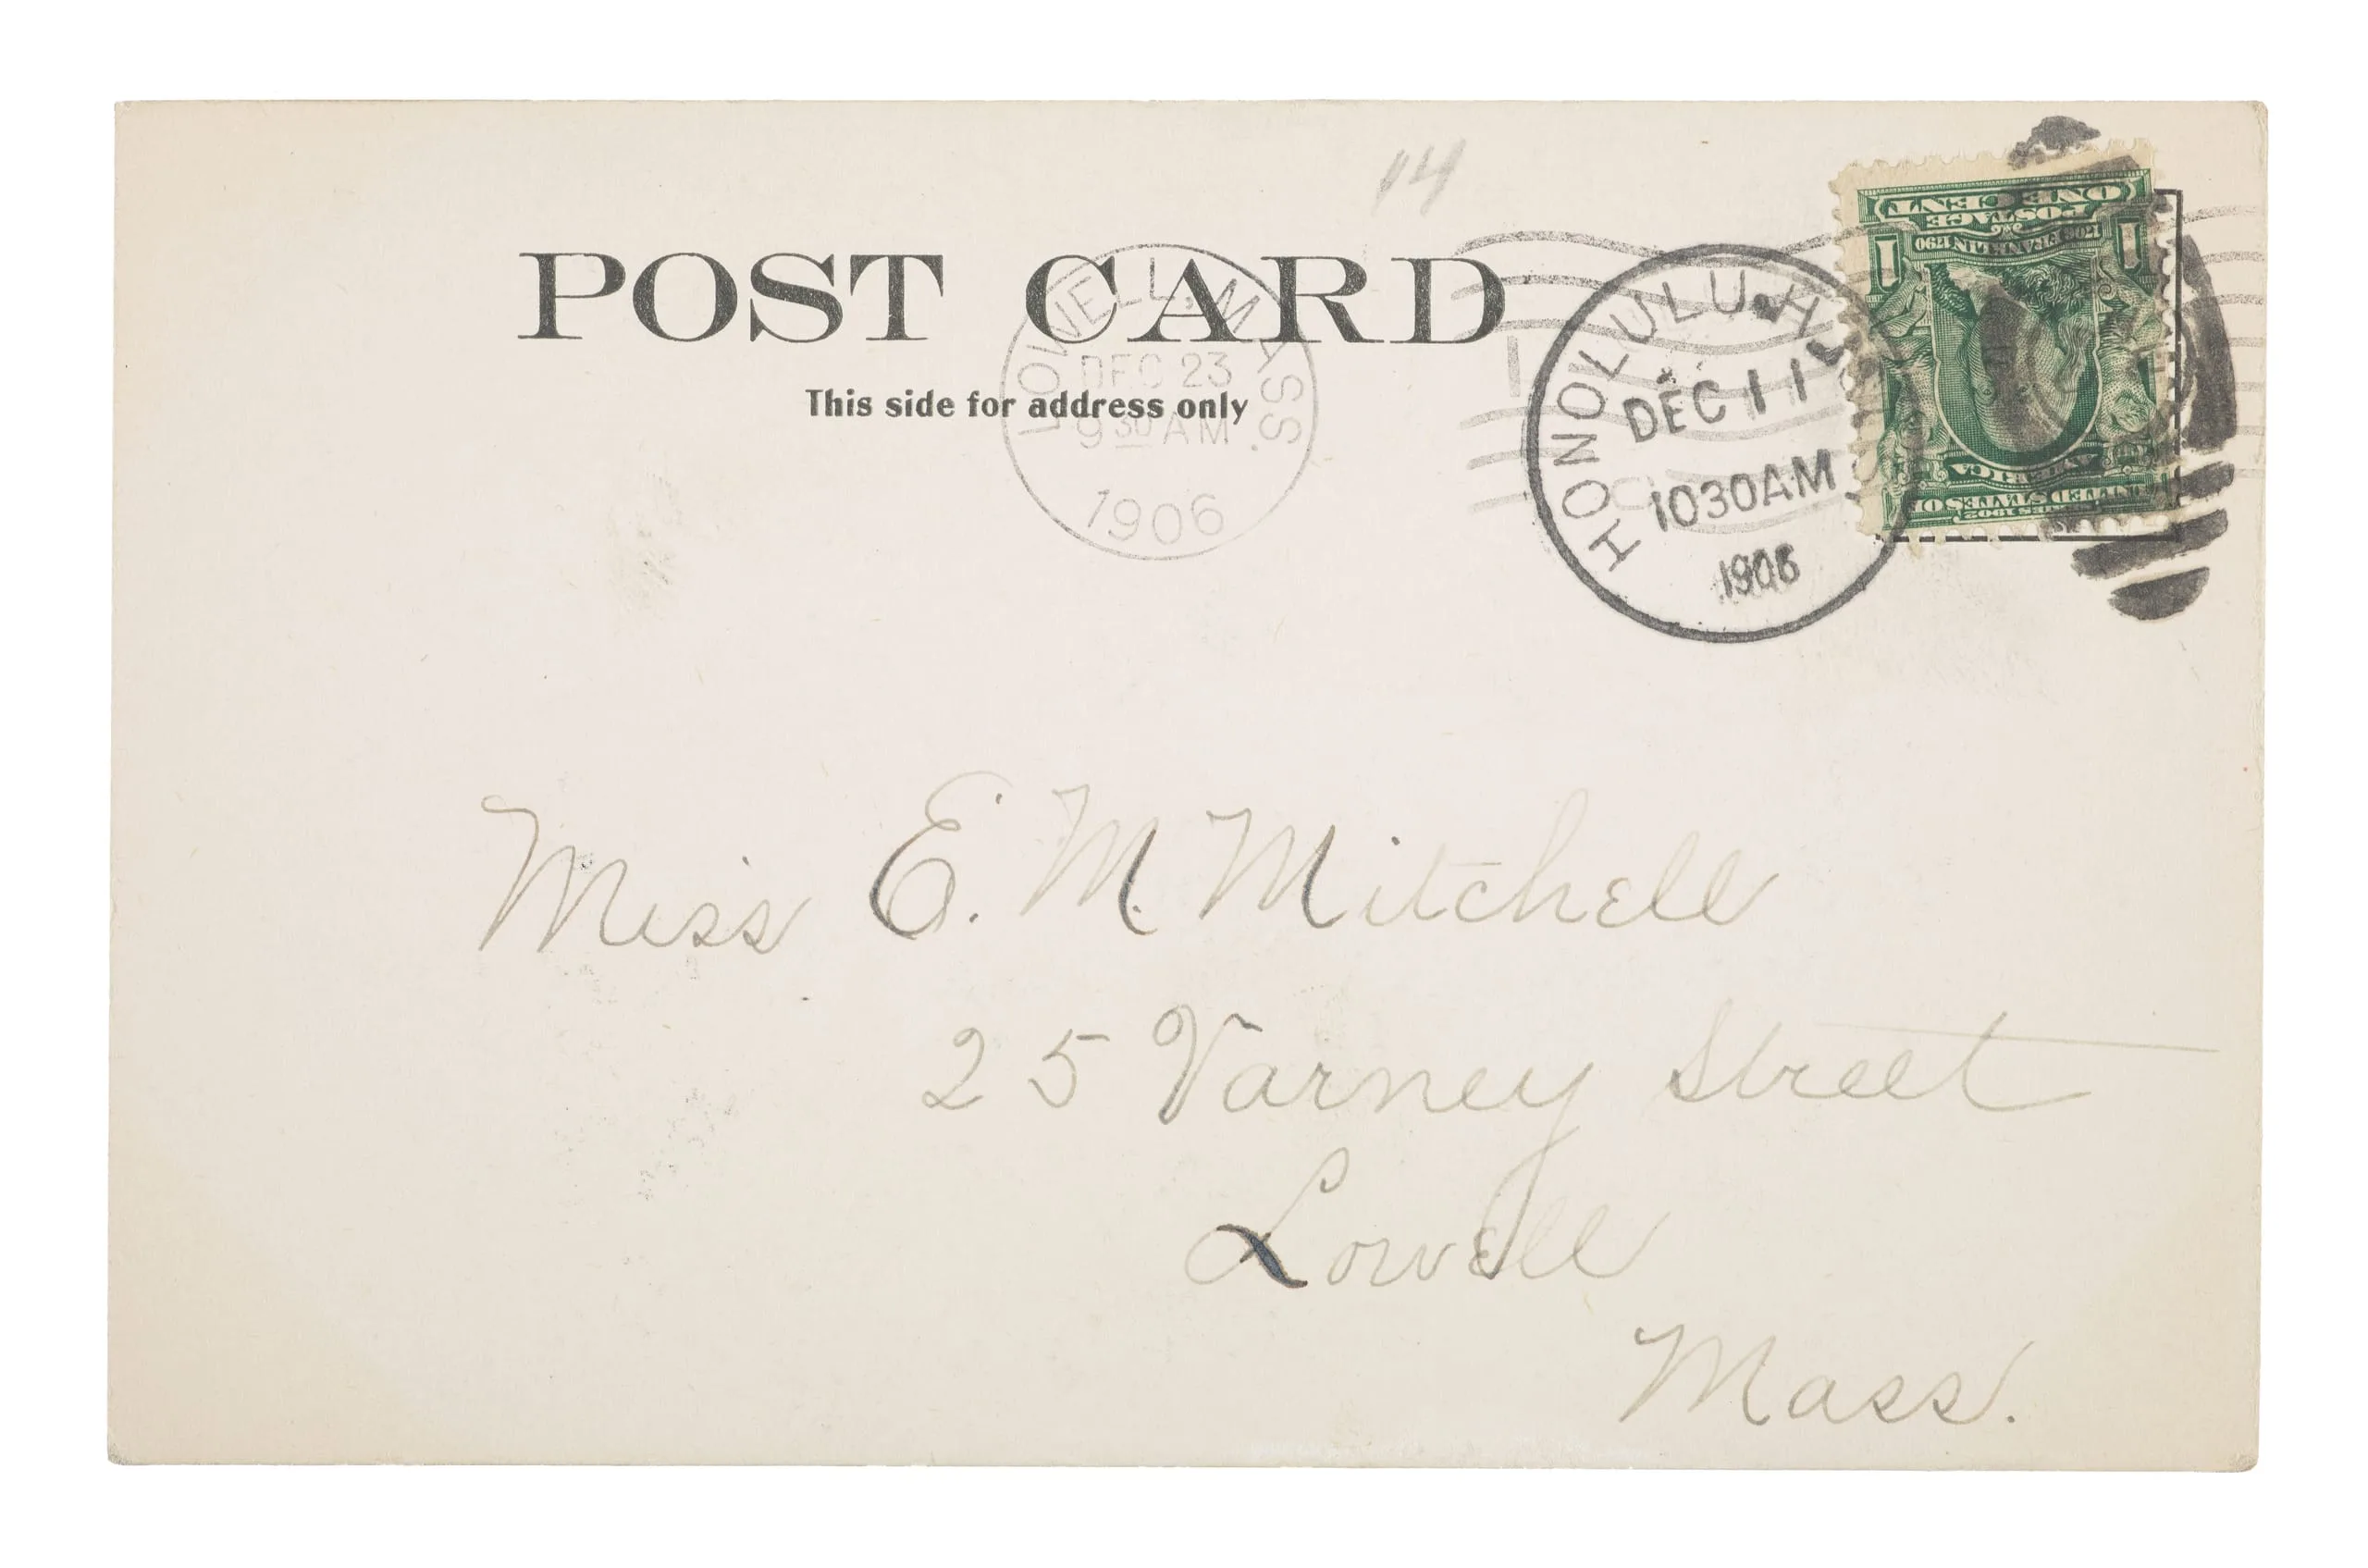 14
POST CARD
This side for address only
LOWELL, MASS.
DEC 23
9 30 AM
1906
HONOLULU. H.
DEC 11
1030AM
1906
ONE CENT
POSTAGE
1706 FRANKLIN 1790
1 1
SERIES 1902
UNITED STATES OF
AMERICA
Miss E. M. Mitchell
25 Varney Street
Lowell
Mass.